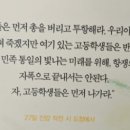 은 먼저 총을 버리고 투항해라. 우리야
죽겠지만 여기 있는 고등학생들은 반
민족 통일의 빛나는 미래를 위해, 항쟁의
자폭으로 끝내서는 안된다.
자, 고등학생들은 먼저 나가라."
27일 진압 작전 시 도청에서